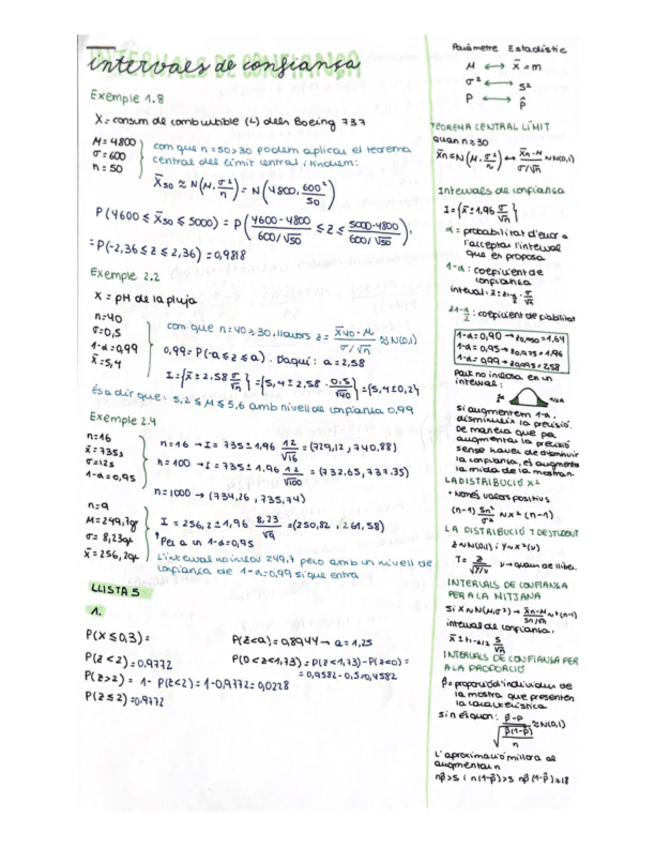 intervals de confiança
Exemple 1.8
X = consum de combustible (L) dels Boeing 737
M = 4800
σ = 600
n = 50
com que n = 50 > 30 podem aplicar el teorema
central del límit central i tindrem:
X̄50 ≈ N(M, σ²/n) = N(4800, 600²/50)
P(4600 ≤ X̄50 ≤ 5000) = P(4600-4800 / 600/√50 ≤ Z ≤ 5000-4800 / 600/√50)
= P(-2,36 ≤ Z ≤ 2,36) = 0,9818
Exemple 2.2
X = pH de la pluja
n = 40
σ = 0,5
1-α = 0,99
x̄ = 5,4
com que n = 40 ≥ 30, llavors Z = X̄40 - M / σ/√n ≈ N(0,1)
0,99 = P(-a ≤ Z ≤ a). D'aquí: a = 2,58
I = {x̄ ± 2,58 σ/√n} = {5,4 ± 2,58 · 0,5/√40} = {5,4 ± 0,2}
És a dir que: 5,2 ≤ M ≤ 5,6 amb nivell de confiança 0,99
Exemple 2.4
n = 16
x̄ = 735s
σ = 12s
1-α = 0,95
n = 16 → I = 735 ± 1,96 12/√16 = (729,12, 740,88)
n = 100 → I = 735 ± 1,96 12/√100 = (732,65, 737,35)
n = 1000 → (734,26, 735,74)
n = 9
M = 249,7gr
σ = 8,23gr
x̄ = 256,2gr
I = 256,2 ± 1,96 8,23/√9 = (250,82, 261,58)
Per a un 1-α = 0,95
L'interval no inclou 249,7 però amb un nivell de
confiança de 1-α = 0,99 si que entra
LLISTA 5
1.
P(X ≤ 0,3) =
P(Z < 2) = 0,9772
P(Z > 2) = 1 - P(Z < 2) = 1 - 0,9772 = 0,0228
P(Z ≤ 2) = 0,9772
P(Z < a) = 0,8944 → a = 1,25
P(0 < Z < 1,73) = P(Z < 1,73) - P(Z < 0) =
= 0,9582 - 0,5 = 0,4582
Paràmetre Estadístic
M ↔ x̄ = m
σ² ↔ S²
P ↔ p̂
TEOREMA CENTRAL LÍMIT
quan n ≥ 30
X̄n ≈ N(M, σ²/n) ↔ X̄n-M / σ/√n ≈ N(0,1)
Intervals de confiança
I = {x̄ ± 1,96 σ/√n}
α = probabilitat d'error a
l'acceptar l'interval
que es proposa
1-α : coeficient de
confiança
interval:
: coeficient de fiabilitat
1-α = 0,90 → z0,950 = 1,64
1-α = 0,95 → z0,975 = 1,96
1-α = 0,99 → z0,995 = 2,58
Part no inclosa en un
interval:
Si augmentem 1-α,
disminueix la precisió.
De manera que per
augmentar la precisió
sense haver de disminuir
la confiança, es augmenta
la mida de la mostra n.
LA DISTRIBUCIÓ X²
• Només valors positius
(n-1) Sn²/σ² ~ X²(n-1)
LA DISTRIBUCIÓ T DE STUDENT
Z ~ N(0,1) i Y ~ X²(ν)
T = Z/√Y/ν ν → graus de lliber.
INTERVALS DE CONFIANÇA
PER A LA MITJANA
Si X ~ N(M, σ²) → X̄n-M / Sn/√n ~ t(n-1)
interval de confiança:
x̄ ± t1-α/2 S/√n
INTERVALS DE CONFIANÇA PER
A LA PROPORCIÓ
p̂ = proporció d'individus de
la mostra que presenten
la característica
Si n és gran: p̂-p / √p̂(1-p̂)/n ≈ N(0,1)
L'aproximació millora al
augmentar n
np̂ > 5 i n(1-p̂) > 5 np̂(1-p̂) ≥ 18